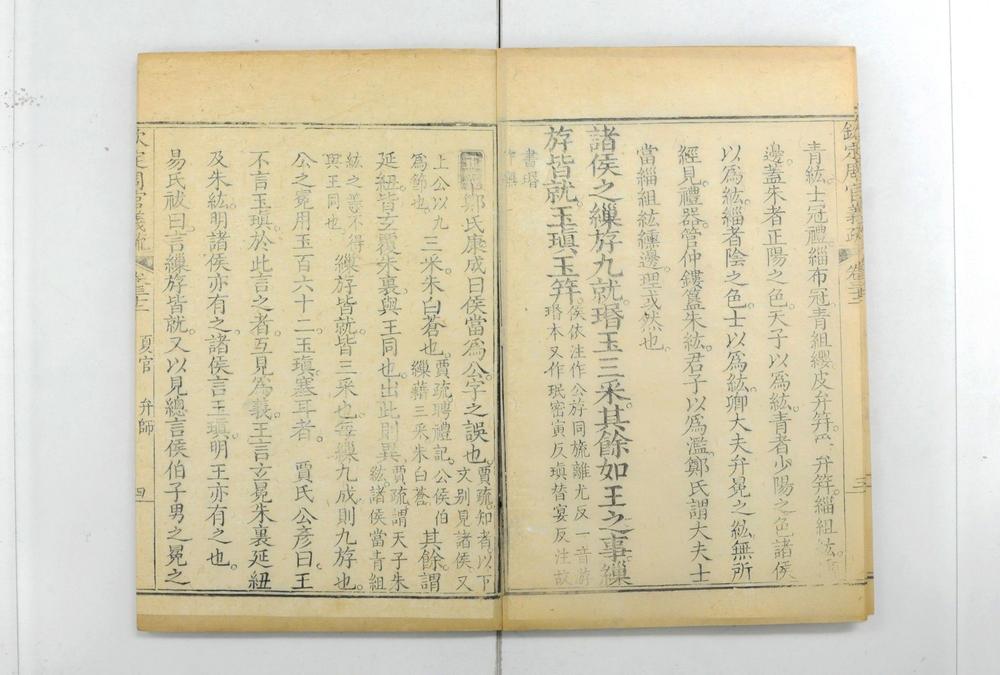 欽定周官義疏 卷三十二 三
青紘士冠禮緇布冠青組纓皮弁笄爵弁笄緇組紘纁
邊蓋朱者正陽之色天子以爲紘青者少陽之色諸侯
以爲紘緇者陰之色士以爲紘卿大夫弁冕之紘無所
經見禮器管仲鏤簋朱紘君子以爲濫鄭氏謂大夫士
當緇組紘纁邊理或然也
諸侯之繅斿九就瑉玉三采其餘如王之事繅
斿皆就玉瑱玉笄
侯依注作公斿同旒離尤反一音游
瑉本又作珉密寅反瑱替宴反注故
書瑉
作璑
鄭氏康成曰侯當爲公字之誤也
賈疏知者以下
文别見諸侯又
上公以九
爲節也
三采朱白蒼也
賈疏聘禮記公侯伯
繅藉三采朱白蒼
其餘謂
延紐皆玄覆朱裏與王同也出此則異
賈疏謂天子朱
紘諸侯當青組
紘之等不得
與王同也
繅斿皆就皆三采也每繅九成則九斿也
公之冕用玉百六十二玉瑱塞耳者 賈氏公彦曰王
不言玉瑱於此言之者互見爲義王言玄冕朱裏延紐
及朱紘明諸侯亦有之諸侯言玉瑱明王亦有之也
易氏祓曰言繅斿皆就又以見總言侯伯子男之冕之
欽定周官義疏 卷三十二 夏官 弁師 四